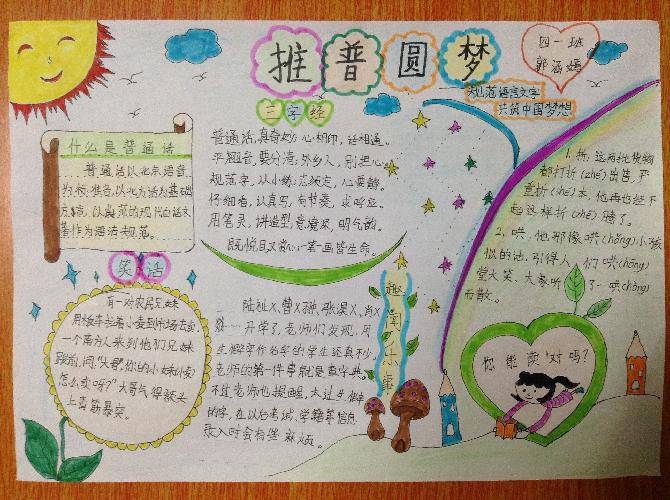 推普圆梦
四一班
郭涵嫣
规范语言文字
共筑中国梦想
三字经
普通话,真奇妙,心相印,话相通。
平翘音,要分清,外乡人,别担心
规范字,从小练,态须端,心要静。
仔细看,认真写,有节奏,求呼应。
用笔灵,讲造型,意境深,明气韵。
既悦目又赏心,一笔一画皆生命。
什么是普通话
普通话以北京语音
为标准音,以北方话为基础
方言,以典范的现代白话文
著作为语法规范。
笑话
有一对农民兄妹
用板车拉着小麦到市场去卖,
一个南方人来到他们兄妹
跟前,问:"大哥,你的小妹(麦)
怎么卖呀?"大哥气得额头
上青筋暴突。
趣闻乐事
陆祉X、曹X翀、张淏X、肖X
开学了,老师们发现,用
生僻字作名字的学生还真不少,
老师的第一件事就是查字典。
不过老师也提醒,太过生僻
的字,在以后考试、学籍等信息
录入时会有些麻烦。
1. 折:这两批货物
都打折(zhé)出售,严
重折(shé)本,他再也经不
起这样折(zhē)腾了。
2. 哄:他那像哄(hǒng)小孩
似的话,引得人们哄(hōng)
堂大笑,大家听了一哄(hòng)
而散。
你能读对吗?